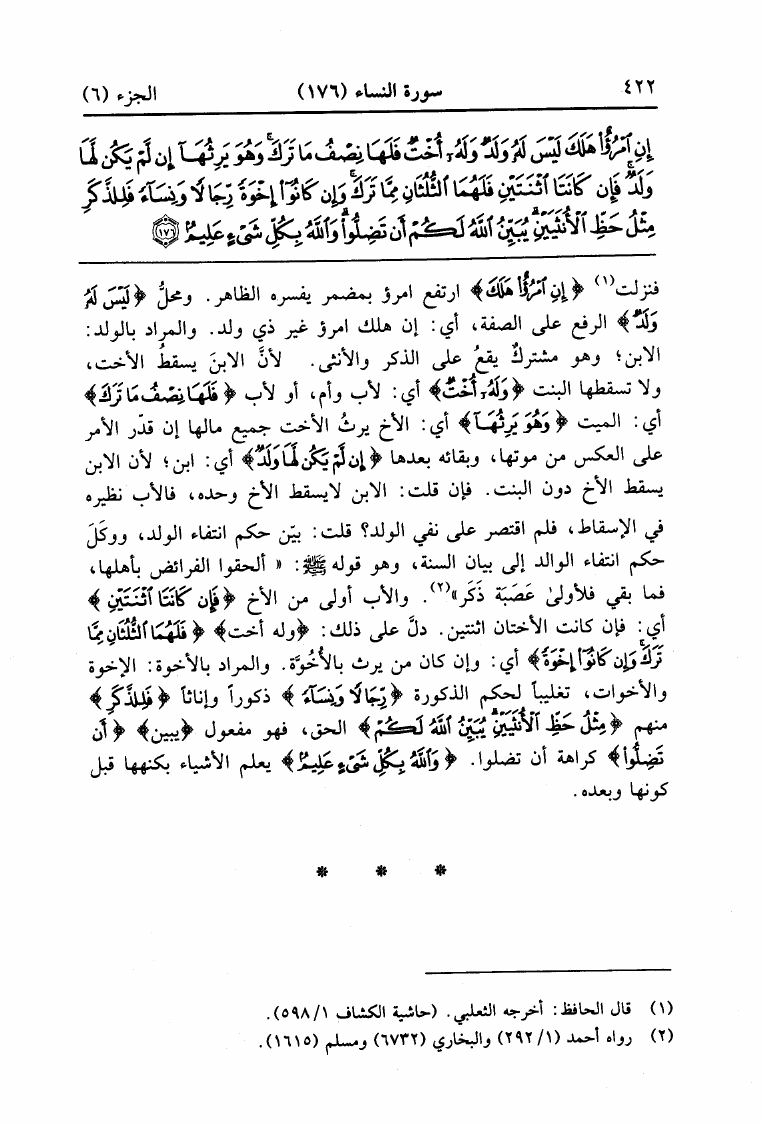 ٤٢٢ سورة النساء (١٧٦) الجزء (٦)
إِنِ ٱمْرُؤٌا۟ هَلَكَ لَيْسَ لَهُۥ وَلَدٌ وَلَهُۥٓ أُخْتٌ فَلَهَا نِصْفُ مَا تَرَكَ ۚ وَهُوَ يَرِثُهَآ إِن لَّمْ يَكُن لَّهَا
وَلَدٌ ۚ فَإِن كَانَتَا ٱثْنَتَيْنِ فَلَهُمَا ٱلثُّلُثَانِ مِمَّا تَرَكَ ۚ وَإِن كَانُوٓا۟ إِخْوَةً رِّجَالًا وَنِسَآءً فَلِلذَّكَرِ
مِثْلُ حَظِّ ٱلْأُنثَيَيْنِ ۗ يُبَيِّنُ ٱللَّهُ لَكُمْ أَن تَضِلُّوا۟ ۗ وَٱللَّهُ بِكُلِّ شَىْءٍ عَلِيمٌۢ ١٧٦
فنزلت(١) ﴿إِنِ ٱمْرُؤٌا۟ هَلَكَ﴾ ارتفع امرؤ بمضمر يفسره الظاهر. ومحلُّ ﴿لَيْسَ لَهُۥ
وَلَدٌ﴾ الرفع على الصفة، أي: إن هلك امرؤ غير ذي ولد. والمراد بالولد:
الابن؛ وهو مشتركٌ يقعُ على الذكر والأنثى. لأنَّ الابنَ يسقطُ الأخت،
ولا تسقطها البنت ﴿وَلَهُۥٓ أُخْتٌ﴾ أي: لأب وأم، أو لأب ﴿فَلَهَا نِصْفُ مَا تَرَكَ﴾
أي: الميت ﴿وَهُوَ يَرِثُهَآ﴾ أي: الأخ يرثُ الأخت جميع مالها إن قدّر الأمر
على العكس من موتها، وبقائه بعدها ﴿إِن لَّمْ يَكُن لَّهَا وَلَدٌ﴾ أي: ابن؛ لأن الابن
يسقط الأخ دون البنت. فإن قلت: الابن لايسقط الأخ وحده، فالأب نظيره
في الإسقاط، فلم اقتصر على نفي الولد؟ قلت: بيّن حكم انتفاء الولد، ووكَلَ
حكم انتفاء الوالد إلى بيان السنة، وهو قوله ﷺ: « ألحقوا الفرائض بأهلها،
فما بقي فلأولىٰ عَصَبَة ذَكَر»(٢). والأب أولى من الأخ ﴿فَإِن كَانَتَا ٱثْنَتَيْنِ﴾
أي: فإن كانت الأختان اثنتين. دلَّ على ذلك: ﴿وله أخت﴾ ﴿فَلَهُمَا ٱلثُّلُثَانِ مِمَّا
تَرَكَ وَإِن كَانُوٓا۟ إِخْوَةً﴾ أي: وإن كان من يرث بالأُخُوَّة. والمراد بالأخوة: الإخوة
والأخوات، تغليباً لحكم الذكورة ﴿رِّجَالًا وَنِسَآءً﴾ ذكوراً وإناثاً ﴿فَلِلذَّكَرِ﴾
منهم ﴿مِثْلُ حَظِّ ٱلْأُنثَيَيْنِ ۗ يُبَيِّنُ ٱللَّهُ لَكُمْ﴾ الحق، فهو مفعول ﴿يبين﴾ ﴿أَن
تَضِلُّوا۟﴾ كراهة أن تضلوا. ﴿وَٱللَّهُ بِكُلِّ شَىْءٍ عَلِيمٌۢ﴾ يعلم الأشياء بكنهها قبل
كونها وبعده.
* * *
(١) قال الحافظ: أخرجه الثعلبي. (حاشية الكشاف ١/ ٥٩٨).
(٢) رواه أحمد (١/ ٢٩٢) والبخاري (٦٧٣٢) ومسلم (١٦١٥).